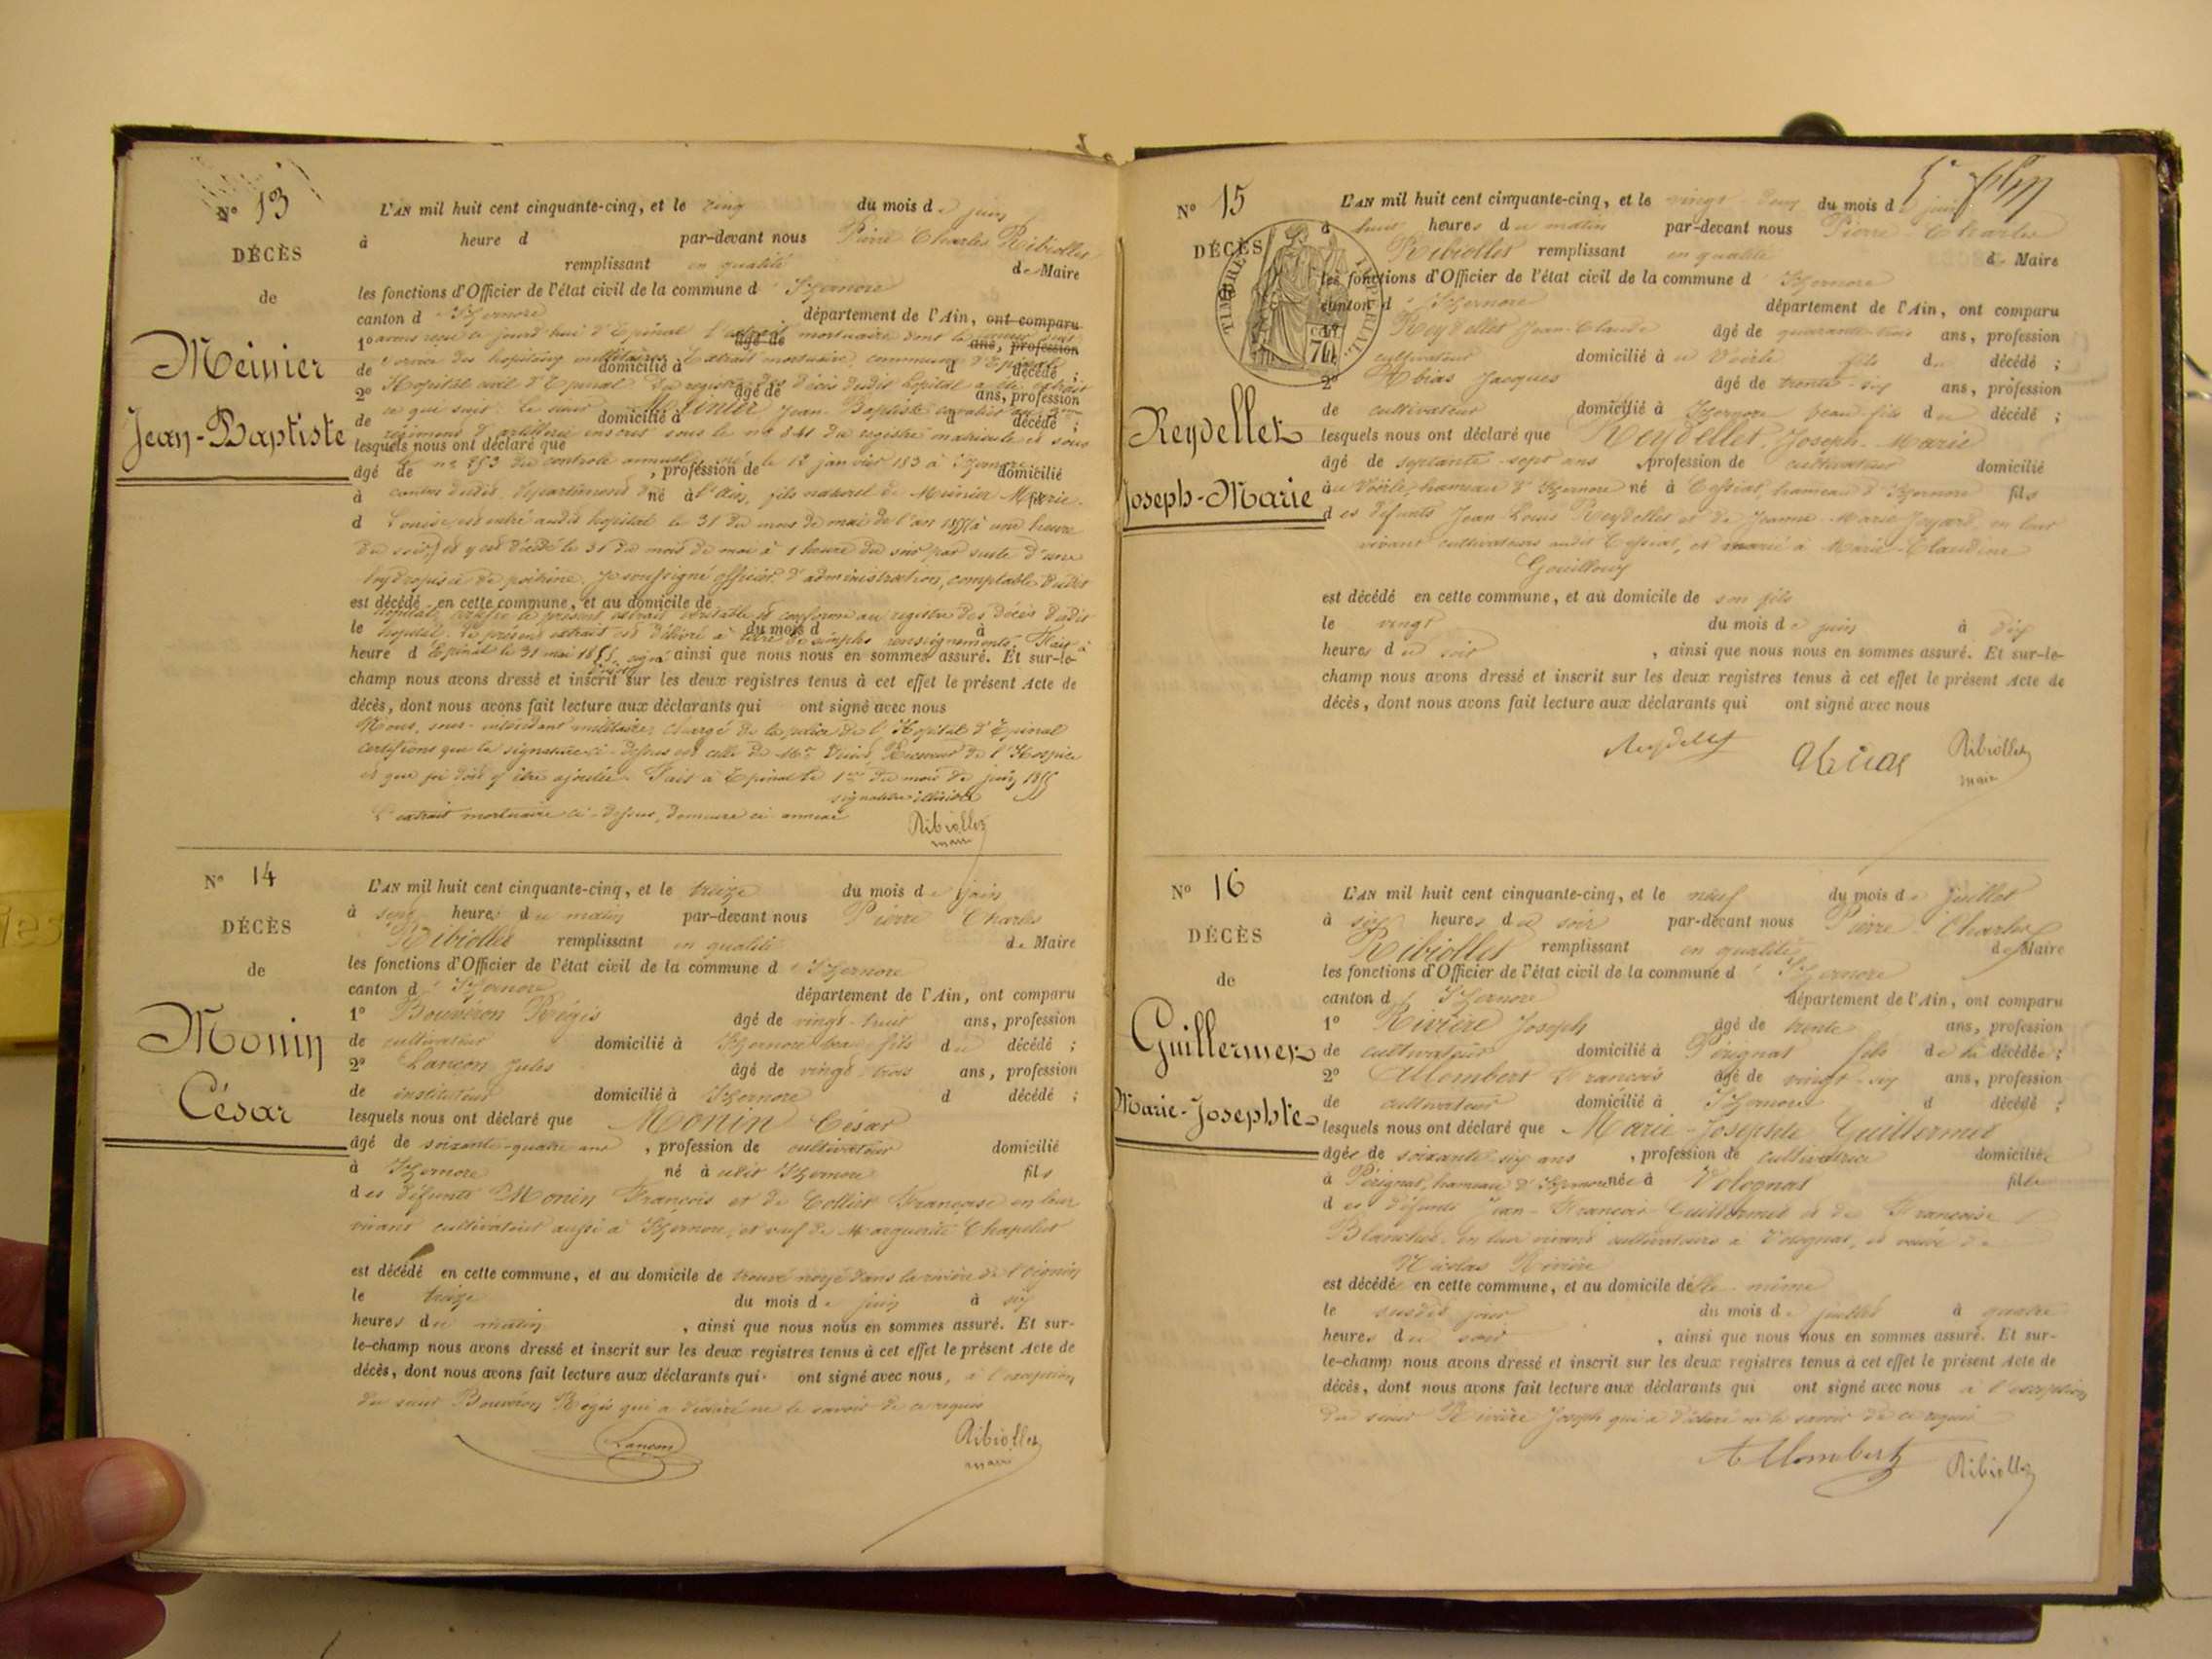 N° 13
DÉCÈS
de
Meinier
Jean-Baptiste
L'AN mil huit cent cinquante-cinq, et le cinq du mois de juin
à heure d par-devant nous Pierre Charles Ribiollet
remplissant en qualité de Maire
les fonctions d'Officier de l'état civil de la commune d'Izernore
canton d'Izernore département de l'Ain, ont comparu
1° avons reçu ce jourd'hui d'Epinal l'extrait mortuaire dont la
âgé de ans, profession
de service des hopitaux militaires. Extrait mortuaire, commune d'Epinal
domicilié à d décédé ;
2° Hopital civil d'Epinal du registre des décès dudit hopital a été extrait
âgé de ans, profession
ce qui suit: le sieur Meinier Jean-Baptiste cavalier au
de domicilié à d décédé ;
régiment d'artillerie inscrit sous le n° 841 du registre matricule et sous
lesquels nous ont déclaré que
le n° 253 du controle annuel, né le 12 janvier 183 à Izernore
âgé de , profession de domicilié
à canton dudit, département de l'Ain, fils naturel de Meinier Marie
né à fil
d Louise est entré audit hopital le 31 du mois de mai de l'an 1855 à une heure
du soir, et y est décédé le 31 du mois de mai à 1 heure du soir par suite d'une
hydropisie de poitrine. Je soussigné officier d'administration, comptable dudit
est décédé en cette commune, et au domicile de
hopital, certifie le présent extrait véritable et conforme au registre des décès dudit
le du mois d à
hopital. Le présent extrait est délivré à titre de simples renseignements. Fait à
heure d Epinal le 31 mai 1855, signé ainsi que nous nous en sommes assuré. Et sur-le-
champ nous avons dressé et inscrit sur les deux registres tenus à cet effet le présent Acte de
décès, dont nous avons fait lecture aux déclarants qui ont signé avec nous
Nous, sous-intendant militaire, chargé de la police de l'Hopital d'Epinal
certifions que la signature ci-dessus est celle de Mr Receveur de l'Hospice
et que foi doit y être ajoutée. Fait à Epinal le 1er du mois de juin 1855
signature illisible
L'extrait mortuaire ci-dessus, demeure ci annexé
Ribiollet
maire
N° 14
DÉCÈS
de
Monin
César
L'AN mil huit cent cinquante-cinq, et le treize du mois de juin
à sept heures du matin par-devant nous Pierre Charles
Ribiollet remplissant en qualité de Maire
les fonctions d'Officier de l'état civil de la commune d'Izernore
canton d'Izernore département de l'Ain, ont comparu
1° Bouvéron Régis âgé de vingt-huit ans, profession
de cultivateur domicilié à Izernore beau-fils du décédé ;
2° Lançon Jules âgé de vingt-trois ans, profession
de instituteur domicilié à Izernore d décédé ;
lesquels nous ont déclaré que Monin César
âgé de soixante-quatre ans , profession de cultivateur domicilié
à Izernore né à udit Izernore fils
des défunts Monin François et de Collet Françoise en leur
vivant cultivateurs aussi à Izernore, et veuf de Marguerite Chapelut
est décédé en cette commune, et au domicile de trouvé noyé dans la rivière de l'Oignin
le treize du mois de juin à six
heures du matin , ainsi que nous nous en sommes assuré. Et sur-
le-champ nous avons dressé et inscrit sur les deux registres tenus à cet effet le présent Acte de
décès, dont nous avons fait lecture aux déclarants qui ont signé avec nous, à l'exception
du sieur Bouvéron Régis qui a déclaré ne le savoir de ce requis
Lançon
Ribiollet
maire
N° 15
DÉCÈS
de
TIMBRE IMPÉRIAL
70
Reydellet
Joseph-Marie
L'AN mil huit cent cinquante-cinq, et le vingt deux du mois de juin
à huit heures du matin par-devant nous Pierre-Charles
Ribiollet remplissant en qualité de Maire
les fonctions d'Officier de l'état civil de la commune d'Izernore
canton d'Izernore département de l'Ain, ont comparu
1° Reydellet Jean-Claude âgé de quarante-trois ans, profession
de cultivateur domicilié à u Voërle fils du décédé ;
2° Abias Jacques âgé de trente-six ans, profession
de cultivateur domicilié à Izernore beau-fils du décédé ;
lesquels nous ont déclaré que Reydellet Joseph-Marie
âgé de septante-sept ans , profession de cultivateur domicilié
à u Voërle, hameau d'Izernore né à Cessiat, hameau d'Izernore fils
des défunts Jean Louis Reydellet et de Jeanne-Marie Joyard, en leur
vivant cultivateurs audit Cessiat, et marié à Marie-Claudine
Gouilloux
est décédé en cette commune, et au domicile de son fils
le vingt du mois de juin à dix
heures du soir , ainsi que nous nous en sommes assuré. Et sur-le-
champ nous avons dressé et inscrit sur les deux registres tenus à cet effet le présent Acte de
décès, dont nous avons fait lecture aux déclarants qui ont signé avec nous
Reydellet
Abias
Ribiollet
maire
N° 16
DÉCÈS
de
Guillermet
Marie-Josephte
L'AN mil huit cent cinquante-cinq, et le neuf du mois de juillet
à six heures du soir par-devant nous Pierre-Charles
Ribiollet remplissant en qualité de Maire
les fonctions d'Officier de l'état civil de la commune d'Izernore
canton d'Izernore département de l'Ain, ont comparu
1° Rivière Joseph âgé de trente ans, profession
de cultivateur domicilié à Pérignat fils de la décédée ;
2° Allombert François âgé de vingt-six ans, profession
de cultivateur domicilié à Izernore d décédé ;
lesquels nous ont déclaré que Marie-Josephte Guillermet
âgée de soixante-six ans , profession de cultivatrice domiciliée
à Pérignat, hameau d'Izernore née à Volognat fille
des défunts Jean-François Guillermet et de Françoise
Blanchet, en leur vivant cultivateurs à Volognat, et veuve de
Nicolas Rivière
est décédée en cette commune, et au domicile d'elle-même
le susdit jour du mois de juillet à quatre
heures du soir , ainsi que nous nous en sommes assuré. Et sur-
le-champ nous avons dressé et inscrit sur les deux registres tenus à cet effet le présent Acte de
décès, dont nous avons fait lecture aux déclarants qui ont signé avec nous à l'exception
du sieur Rivière Joseph qui a déclaré ne le savoir de ce requis
Allombert
Ribiollet